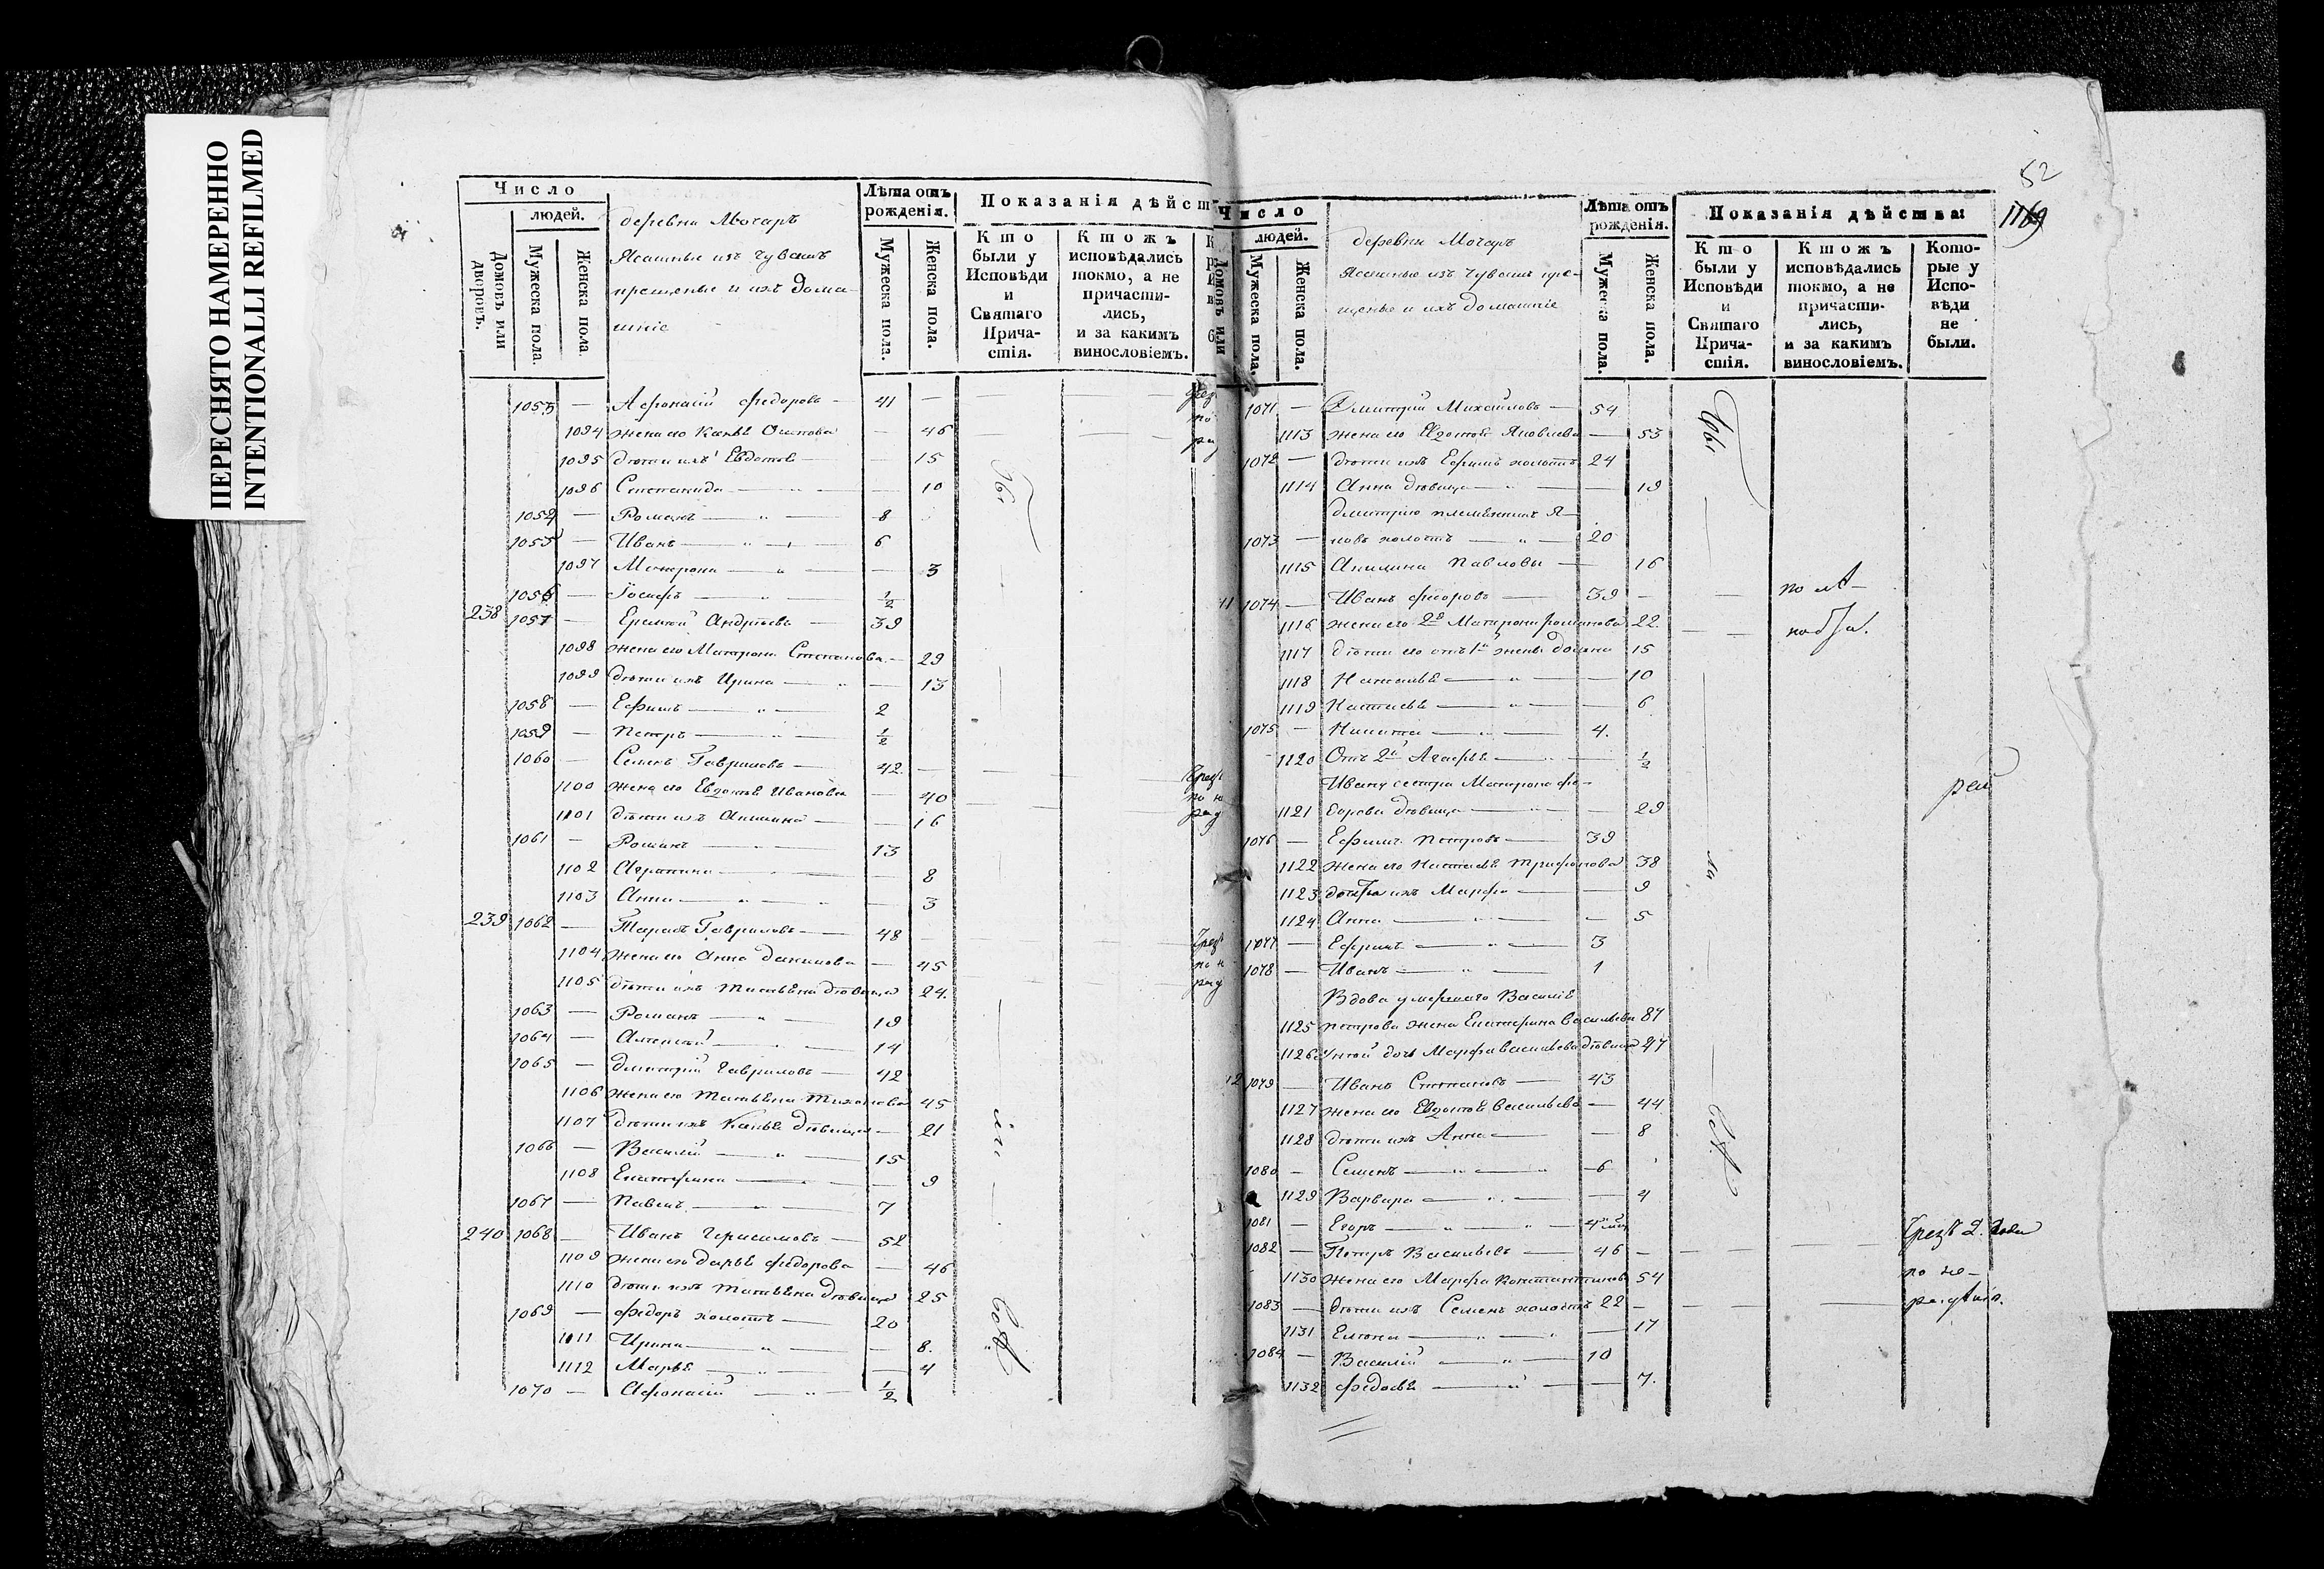 ПЕРЕСНЯТО НАМЕРЕННО
INTENTIONALLI REFILMED
Число
людей.
Домовъ или дворовъ.
Мужеска пола.
Женска пола.
деревни Мочаръ
Ясашные изъ чувашъ
крещеные и ихъ дома-
шніе
Лѣта отъ рожденія.
Мужеска пола.
Женска пола.
Показанія дѣйст
Кто были у Исповѣди и Святаго Прича-стія.
Ктожъ исповѣдались токмо, а не причасти-лись, и за какимъ винословіемъ.
1053 — Афонасій Федоровъ — 41 —
1094 жена ево Софья Осипова — 46
1095 дѣти ихъ Евдотья — 15
1096 Степанида — 10
1054 — Романъ — 8
1055 — Иванъ — 6
1097 Матрона — 3
1056 — Іосифъ — 1/2
238 1057 — Еремѣй Андрѣевъ — 39
1098 жена ево Матрона Степанова — 29
1099 дѣти ихъ Ирина — 13
1058 — Ефимъ — 2
1059 — Петръ — 1/2
1060 — Семенъ Гавриловъ — 42
1100 жена ево Евдотья Иванова — 40
1101 дѣти ихъ Акилина — 16
1061 — Романъ — 13
1102 Агрипина — 8
1103 Анна — 3
239 1062 — Тарасъ Гавриловъ — 48
1104 жена ево Анна Данилова — 45
1105 дѣти ихъ Татьяна дѣвица 24.
1063 — Романъ — 19
1064 — Алексѣй — 14
1065 — Дмитрій Гавриловъ — 42
1106 жена ево Татьяна Тихонова 45
1107 дѣти ихъ Софья дѣвица — 21
1066 — Василій — 15
1108 Екатерина — 9
1067 — Павелъ — 7
240 1068 — Иванъ Герасимовъ — 52
1109 жена ево Дарья Федорова — 46
1110 дѣти ихъ Татьяна дѣвица 25
1069 — Федоръ холостъ — 20
1111 Ирина — 8.
1112 Марья — 4
1070 — Афонасій — 1/2
52
1169
Число
людей.
Домовъ или
Мужеска пола.
Женска пола.
деревни Мочаръ
Ясашные изъ чувашъ кре-
щеные и ихъ домашніе
Лѣта отъ рожденія.
Мужеска пола.
Женска пола.
Показанія дѣйства:
Кто были у Исповѣди и Святаго Прича-стія.
Ктожъ исповѣдались токмо, а не причасти-лись, и за какимъ винословіемъ.
Кото-рые у Испо-вѣди не были.
1071 — Дмитрій Михайловъ — 54
1113 жена ево Евдотья Яковлева — 53
1072 — дѣти ихъ Ефимъ холостъ 24
1114 Анна дѣвица — 19
Дмитрію племянникъ Я-
1073 — ковъ холостъ — 20
1115 Акилина Павлова — 16
1074 — Иванъ Федоровъ — 39 —
1116 жена его 2я Матрона Романова 22.
1117 дѣти ево отъ 1й жены Домна 15
1118 Наталья — 10
1119 Настасья — 6
1075 — Никита — 4.
1120 Отъ 2й Агафья — 1/2
Ивану сестра Матрона Фе-
1121 дорова дѣвица — 29
1076 — Ефимъ Петровъ — 39
1122 жена ево Настасья Трифонова 38
1123 дѣти ихъ Марфа — 9
1124 Анна — 5
1077 — Ефимъ — 3
1078 — Иванъ — 1
Вдова умершаго Василья
1125 Петрова жена Екатерина Васильева 87
1126 у ней дочь Марфа Васильева дѣвица 47
1079 — Иванъ Степановъ — 43
1127 жена ево Евдотья Васильева — 44
1128 дѣти ихъ Анна — 8
1080 — Семенъ — 6
1129 Варвара — 4
1081 — Егоръ — 4
1082 — Петръ Васильевъ — 46 —
1130 жена ево Марфа Константинова 54
1083 — дѣти ихъ Семенъ холостъ 22
1131 Елена — 17
1084 — Василій — 10
1132 Федосья — 7.
Чрезъ 2. года
по не-
радѣнію.